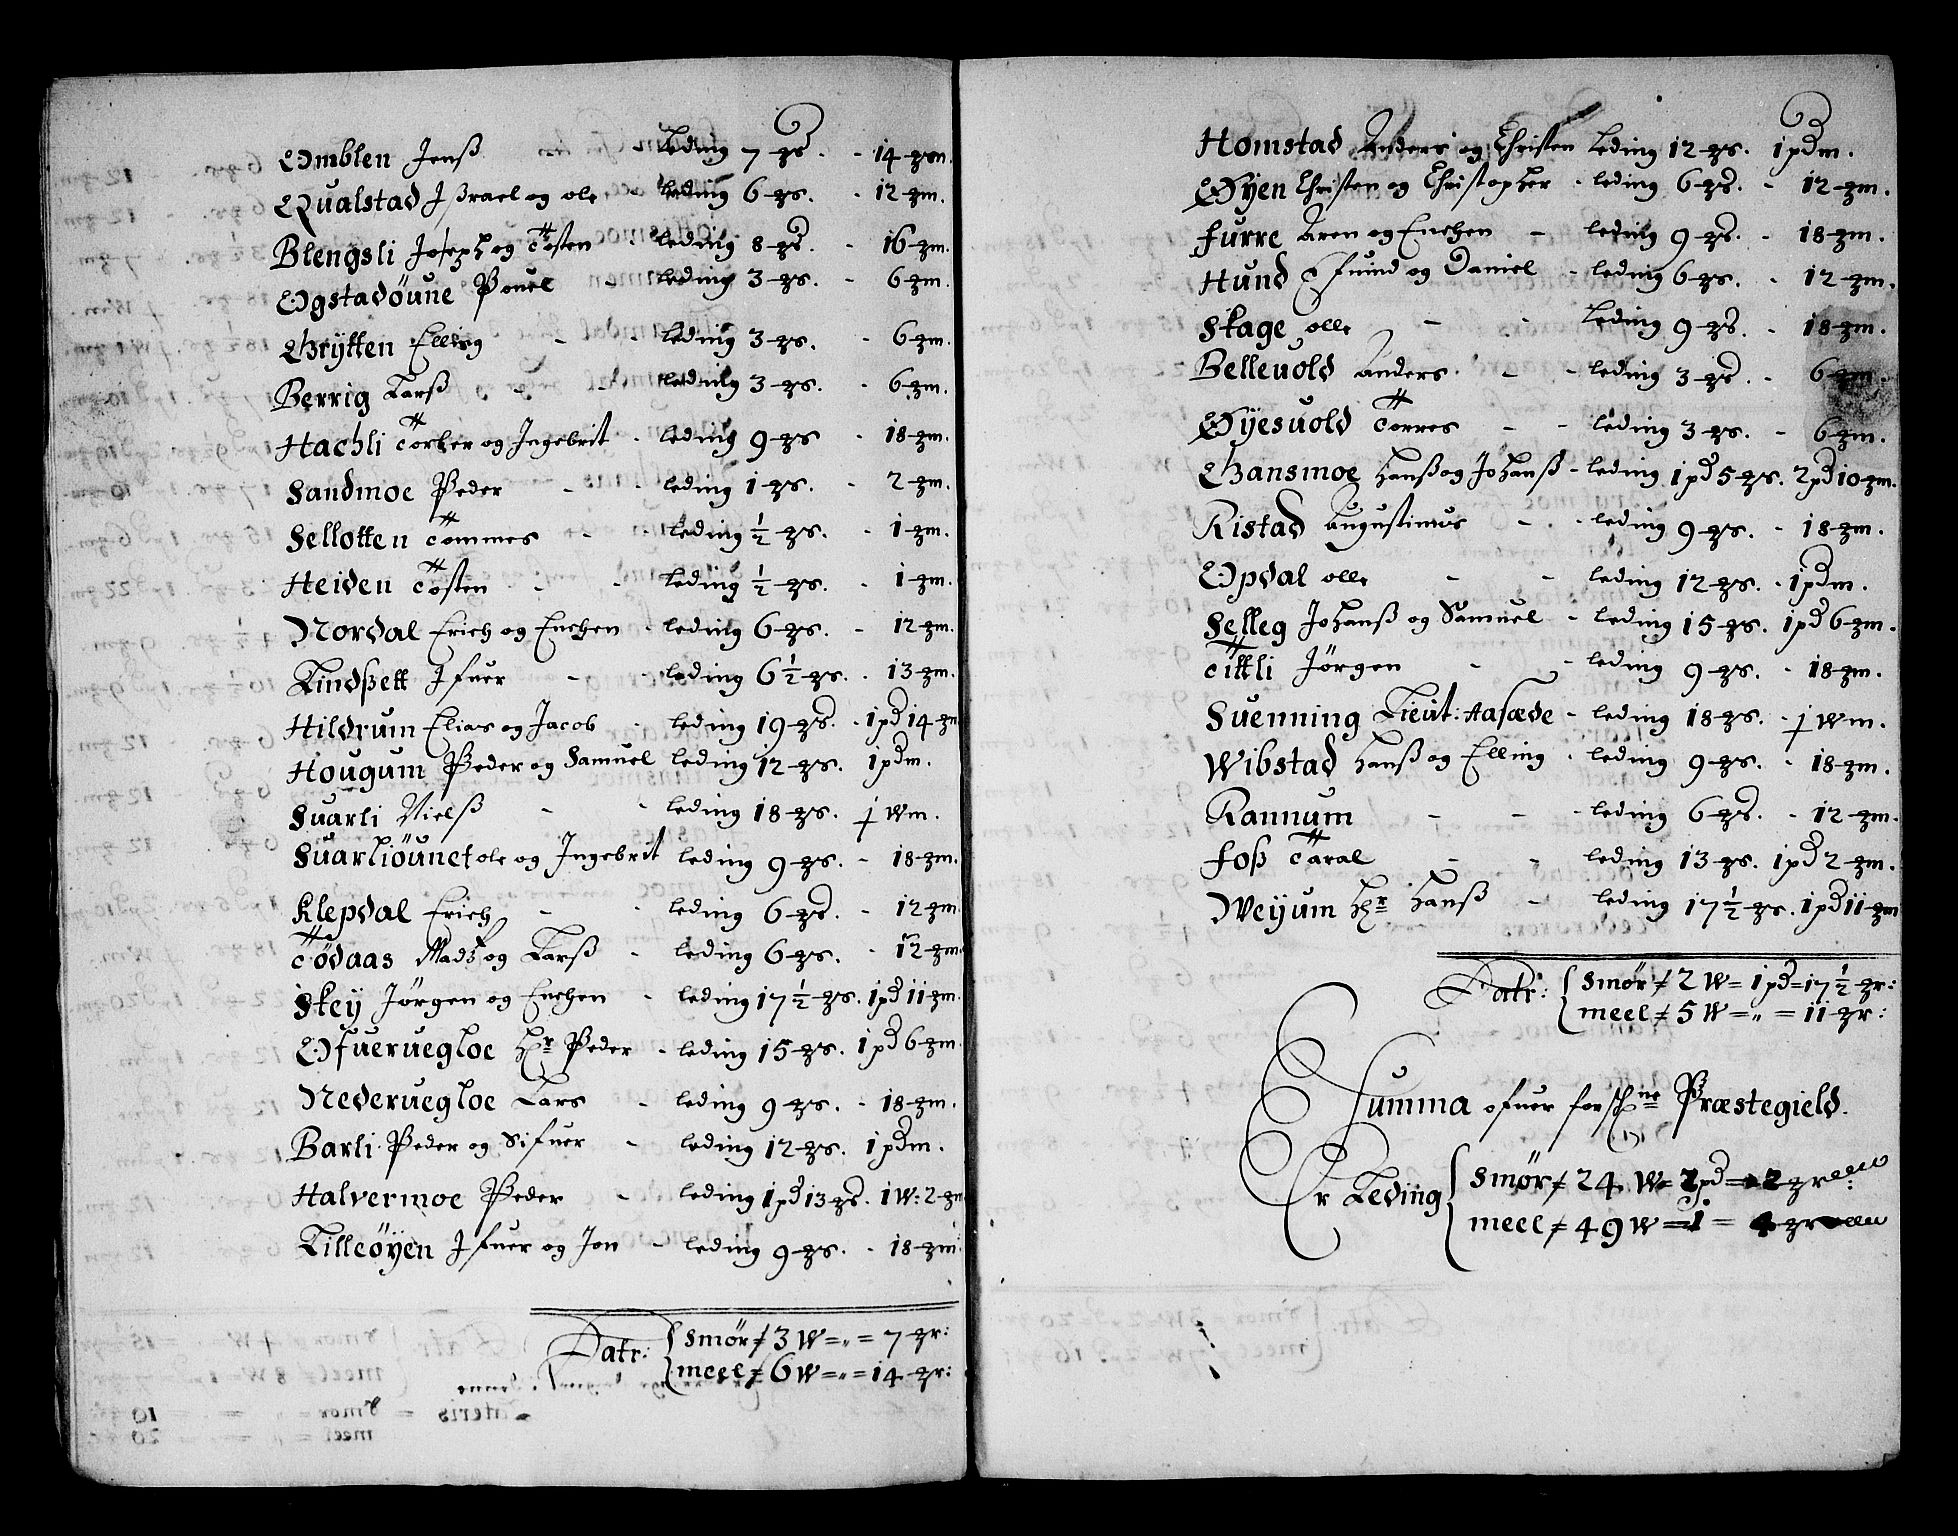 Omblen Jenß leding 7 zs. - 14 zm.
Qualstad Jßrael og ole leding 6 zs. - 12 zm.
Blengsli Joseph og Tosten leding 8 zs. - 16 zm.
Ogstadöune Pouel leding 3 zs. - 6 zm.
Grÿtten Elling - - leding 3 zs. - 6 zm.
Berrig Larß - - leding 3 zs. - 6 zm.
Hachli Torker og Ingebrit - leding 9 zs - 18 zm.
Sandmoe Peder - - leding 1 zs. - 2 zm.
Sellotten Tommes - - leding ½ zs. - 1 zm.
Heiden Tosten - - leding ½ zs. - 1 zm.
Nordal Erich og Enchen - leding 6 zs. - 12 zm.
Lindßett Ifuer - - leding 6½ zs. - 13 zm.
Hildrum Elias og Jacob - leding 19 zs. - 1 pd 14 zm
Hougum Peder og Samuel leding 12 zs. 1 pdm.
Suarli Nielß - - leding 18 zs. j Wm.
Suarliöunet ole og Ingebrit leding 9 zs. - 18 zm.
Klepdal Erich - - leding 6 zs. - 12 zm.
Tödaas Madz og Larß - leding 6 zs. - 12 zm.
Skey Jørgen og Enchen - leding 17½ zs. 1 pd 11 zm.
Ofuerueglоe Hr Peder - leding 15 zs. 1 pd 6 zm.
Nederuegloe Lars - leding 9 zs. - 18 zm.
Barli Peder og Sifuer - leding 12 zs. 1 pdm.
Halvermoe Peder - leding 1 pd 13 zs. 1 W: 2 zm
Lilleöÿen Ifuer og Jon - leding 9 zs. - 18 zm
Latr: smør 3 W = „ = 7 zr:
meel 6 W = „ = 14 zr:
Homstad Anders og Christen leding 12 zs. 1 pdm.
Øyen Christen og Christopher - leding 6 zs. - 12 zm.
Furre Aren og Enchen - leding 9 zs. - 18 zm.
Hund Efuind og Daniel - leding 6 zs. - 12 zm.
Skage olle - - leding 9 zs. - 18 zm.
Belleuold Anders - - leding 3 zs. - 6 zm.
Øyesuold Torres - - leding 3 zs. - 6 zm.
Gansmoe Hanß og Johanß - leding 1 pd 5 zs. 2 pd 10 zm.
Ristad Augustinus - - leding 9 zs. - 18 zm.
Opdal olle - - leding 12 zs. - 1 pdm.
Selleg Johanß og Samuel - leding 15 zs. 1 pd 6 zm.
Tittli Jørgen - - leding 9 zs. - 18 zm.
Suenning Lieut: Aasæde - leding 18 zs. - j Wm.
Wibstad Hanß og Elling - leding 9 zs. - 18 zm.
Rannum - - - leding 6 zs. - 12 zm.
Foß Taral - - leding 13 zs. 1 pd 2 zm.
Weÿum Hr Hanß - leding 17½ zs. 1 pd 11 zm
Latr: smør 2 W = 1 pd = 17½ zr:
meel 5 W = „ = 11 zr:
Summa ofuer forschne Præstegield.
Er Leding smør 24 W = 2 pd = 2 zr
meel 49 W = 1 = 4 zr